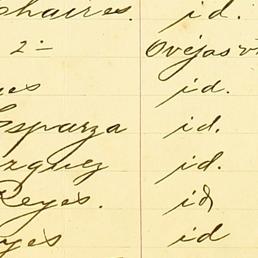 chaires. id.
2=
Ovejas
es id.
Esparza id.
zquez id.
Reyes. id
yes id